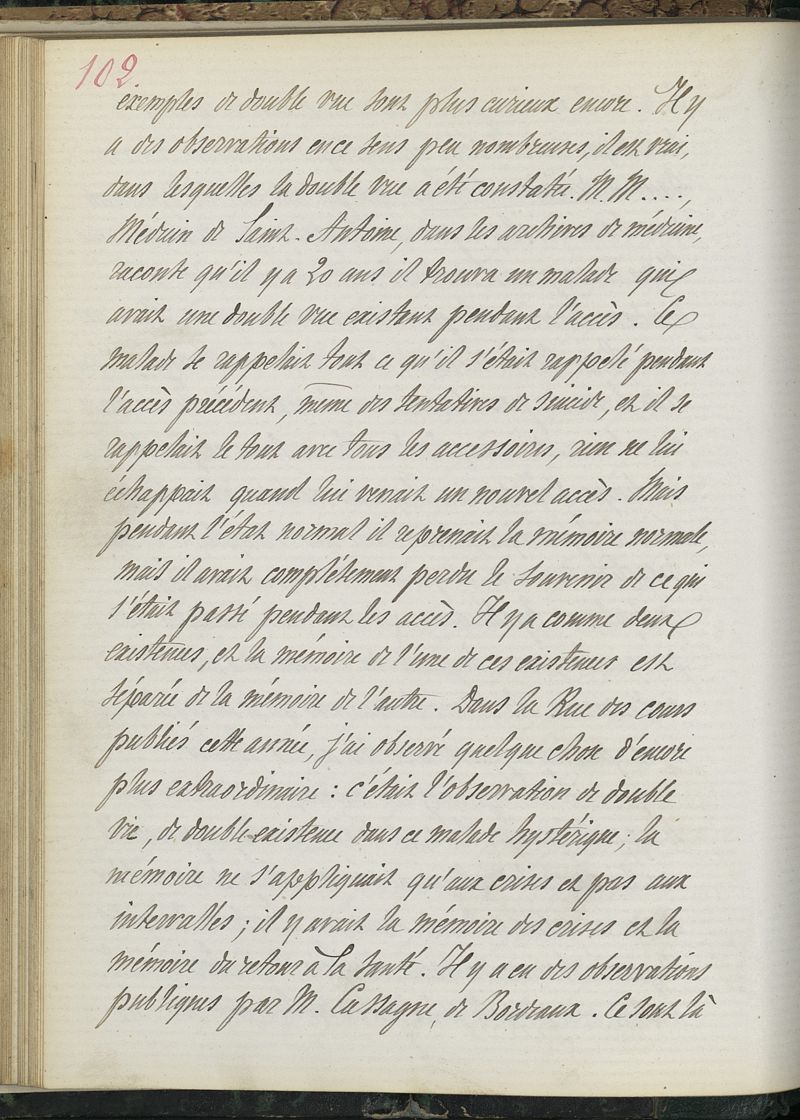 102.
exemples de double vue sont plus curieux encore. Il y
a des observations en ce sens peu nombreuses, il est vrai,
dans lesquelles la double vue a été constatée. M. M....,
Médecin de Saint-Antoine, dans les archives de médecine,
raconte qu'il y a 20 ans il trouva un malade qui
avait une double vue existant pendant l'accès. Ce
malade se rappelait tout ce qu'il s'était rappelé pendant
l'accès précédent, même des tentatives de suicide, et il se
rappelait le tout avec tous les accessoires, rien ne lui
échappait quand lui venait un nouvel accès. Mais
pendant l'état normal il reprenait la mémoire normale,
mais il avait complétement perdu le souvenir de ce qui
s'était passé pendant les accès. Il y a comme deux
existences, et la mémoire de l'une de ces existences est
séparée de la mémoire de l'autre. Dans la Rue des cours
publiés cette année, j'ai observé quelque chose d'encore
plus extraordinaire : c'était l'observation de double
vie, de double existence dans ce malade hystérique ; la
mémoire ne s'appliquait qu'aux crises et pas aux
intervalles ; il y avait la mémoire des crises et la
mémoire du retour à la santé. Il y a eu des observations
publiques par M. Cassagne, de Bordeaux. Ce sont là